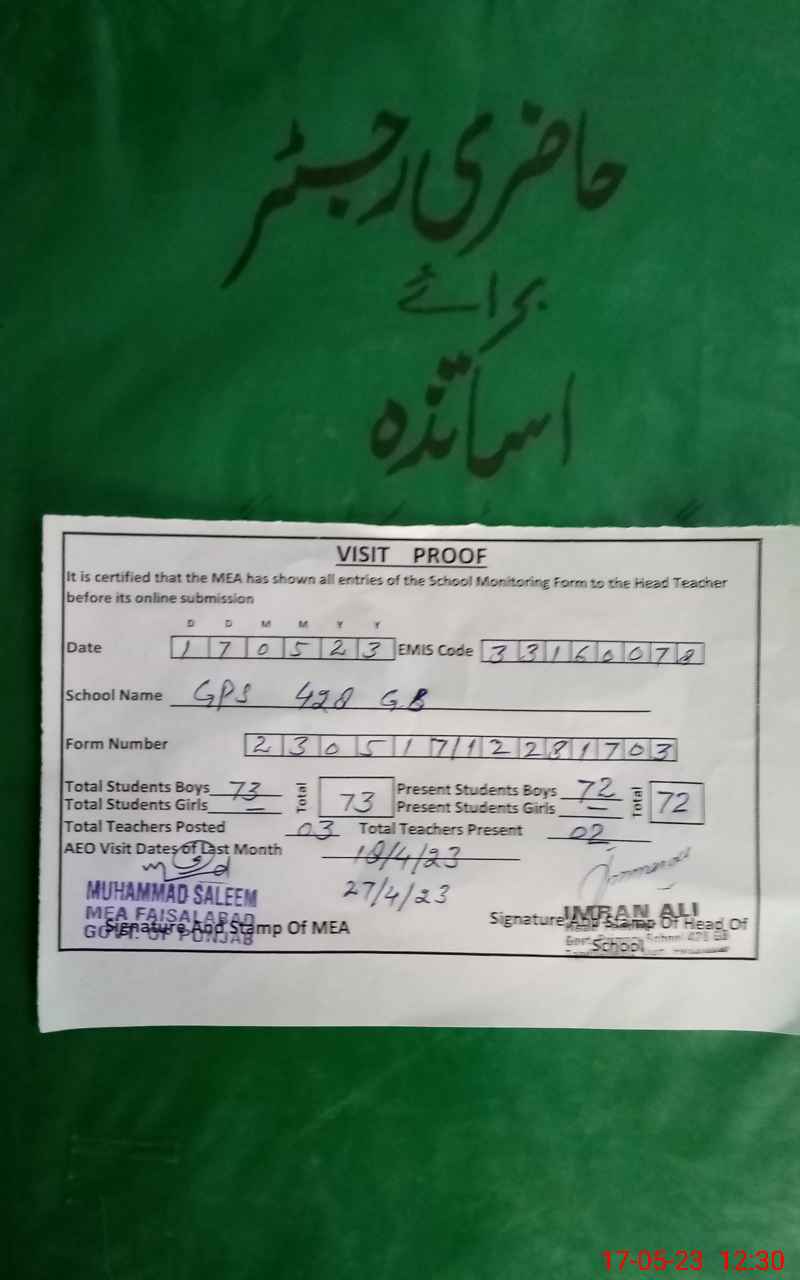 حاضری رجسٹر
برائے
اساتذہ
VISIT PROOF
It is certified that the MEA has shown all entries of the School Monitoring Form to the Head Teacher
before its online submission
D D M M Y Y
Date 1 7 0 5 2 3 EMIS Code 3 3 1 6 0 0 7 8
School Name GPS 428 GB
Form Number 2 3 0 5 1 7 / 1 2 2 8 1 7 0 3
Total Students Boys 73 Total 73 Present Students Boys 72 Total 72
Total Students Girls – Present Students Girls –
Total Teachers Posted 03 Total Teachers Present 02
AEO Visit Dates of Last Month 18/4/23
27/4/23
MUHAMMAD SALEEM
MEA FAISALABAD
GOVT. OF PUNJAB
Signature And Stamp Of MEA
IMRAN ALI
Signature And Stamp Of Head Of
School
17-05-23 12:30